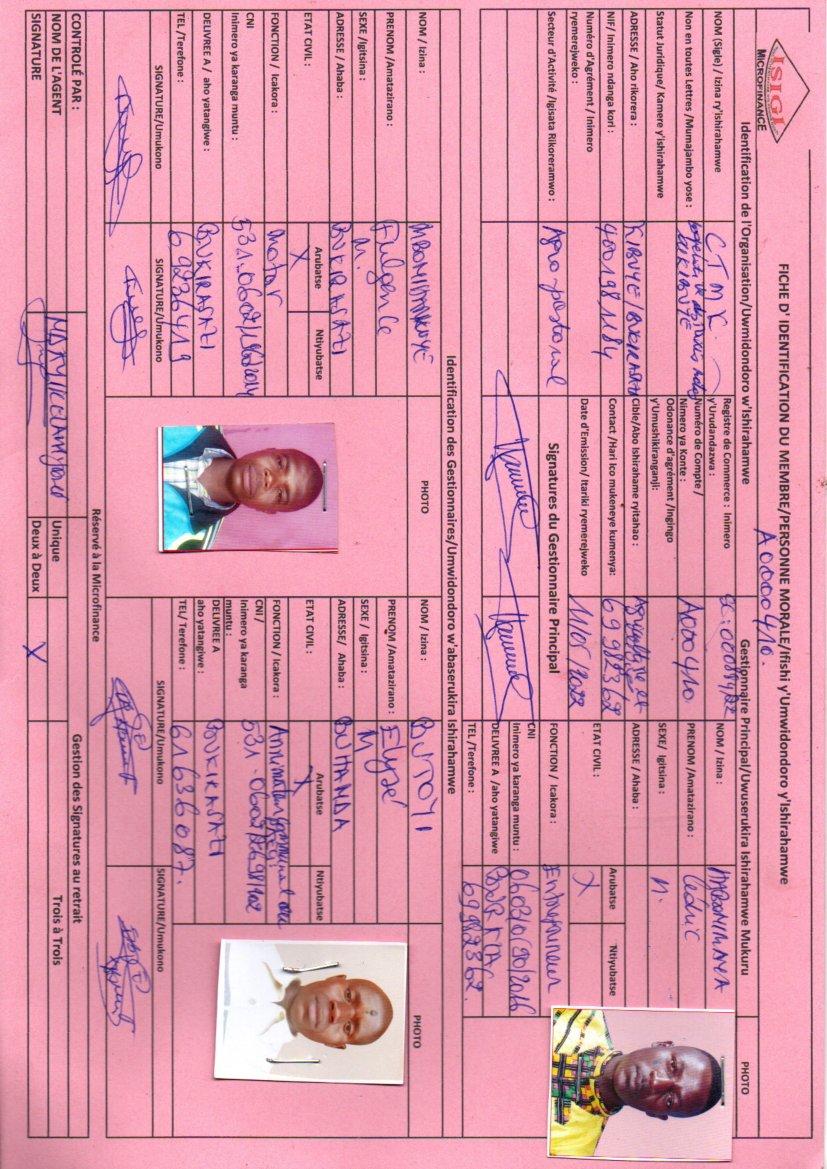 ISIGI
MICROFINANCE
FICHE D' IDENTIFICATION DU MEMBRE/PERSONNE MORALE/Ifishi y'Umwidondoro y'Ishirahamwe
A0000410.
Identification de l'Organisation/Uwmidondoro w'Ishirahamwe
Gestionnaire Principal/Uwuserukira Ishirahamwe Mukuru
PHOTO
NOM (Sigle) / Izina ry'ishirahamwe
C.T.M.K.
Registre de Commerce : Inimero y'Urudandazwa :
NOM / Izina :
Non en toutes Lettres /Mumajambo yose :
Numéro de Compte / Nimero ya Konte :
A000410
PRENOM /Amatazirano :
Cédric
Statut Juridique/ Kamere y'ishirahamwe
Odonance d'agrément /Ingingo y'Umushikiranganji:
SEXE/ Igitsina :
ADRESSE / Aho rikorera :
KIBUYE / BUKIRASAZI
Cible/Abo Ishirahame ryitahao :
ADRESSE / Ahaba :
NIF/ Inimero ndanga kori :
Contact /Hari ico mukeneye kumenya:
69982362
ETAT CIVIL :
Arubatse
X
Ntiyubatse
Numéro d'Agrément / Inimero ryemerejweko :
Date d'Emission/ Itariki ryemerejweko
11/05/2022
FONCTION / Icakora :
Entrepreneur
Secteur d'Activité /Igisata Rikoreramwo :
Agro-pastoral
Signatures du Gestionnaire Principal
CNI
Inimero ya karanga muntu :
DELIVREE A /aho yatangiwe
TEL /Terefone :
69982362
Identification des Gestionnaires/Umwidondoro w'abaserukira Ishirahamwe
NOM / Izina :
PHOTO
NOM / Izina :
BUTOYI
PHOTO
PRENOM /Amatazirano :
Fulgence
PRENOM /Amatazirano :
Elysé
SEXE /Igitsina :
M.
SEXE / Igitsina :
M
ADRESSE / Ahaba :
BUKIRASAZI
ADRESSE/ Ahaba :
BUHANDA
ETAT CIVIL :
Arubatse
X
Ntiyubatse
ETAT CIVIL :
Arubatse
X
Ntiyubatse
FONCTION / Icakora :
FONCTION / Icakora :
CNI
Inimero ya karanga muntu :
CNI /
Inimero ya karanga muntu :
DELIVREE A / aho yatangiwe :
BUKIRASAZI
DELIVREE A
aho yatangiwe :
BUKIRASAZI
TEL /Terefone :
69236419
TEL/ Terefone :
61636087.
SIGNATURE/Umukono
SIGNATURE/Umukono
SIGNATURE/Umukono
SIGNATURE/Umukono
Réservé à la Microfinance
CONTROLÉ PAR :
Gestion des Signatures au retrait
NOM DE L'AGENT
Unique
Trois à Trois
SIGNATURE
Deux à Deux
X